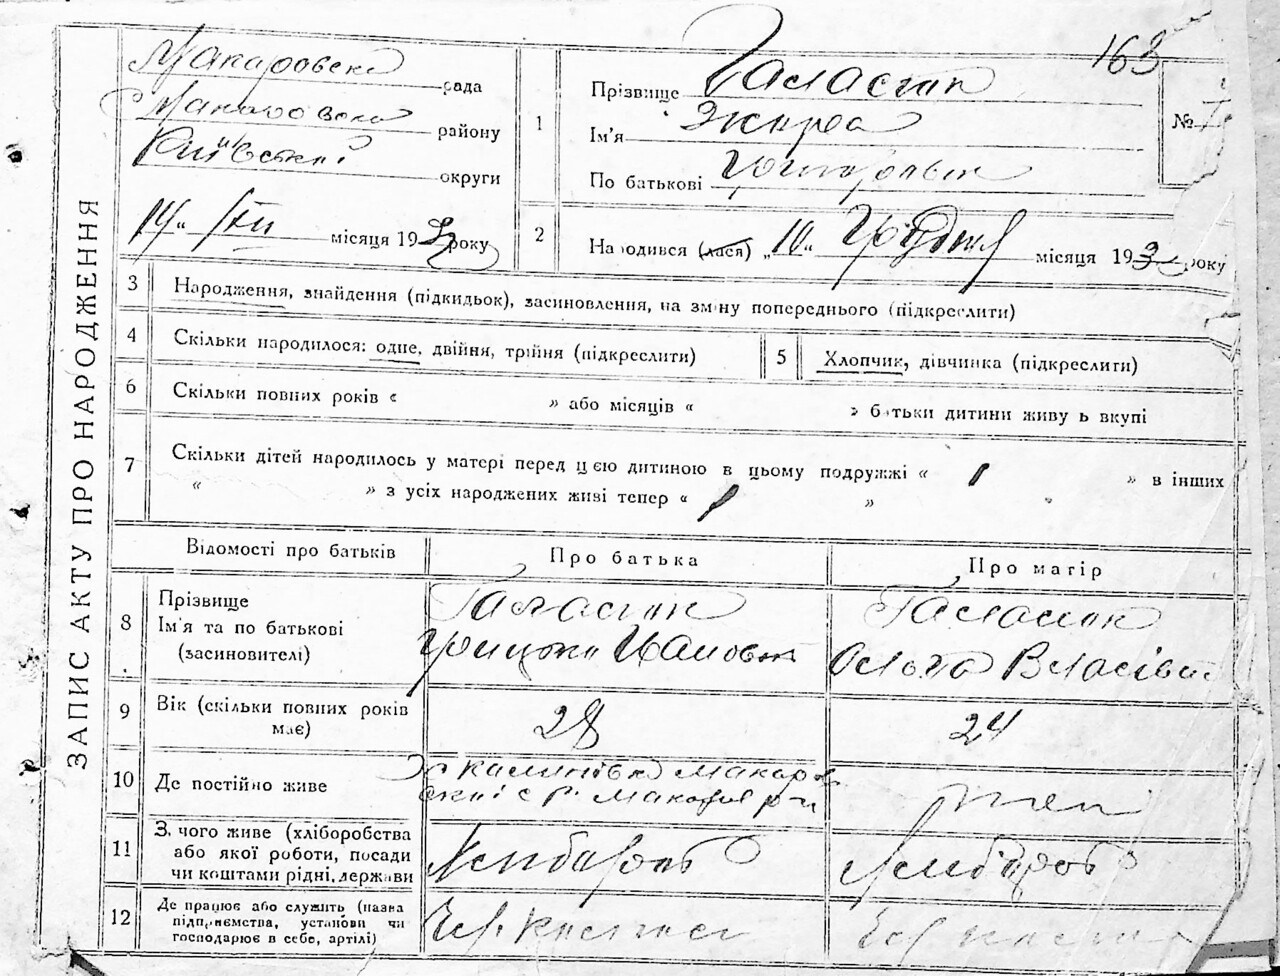 163
ЗАПИС АКТУ ПРО НАРОДЖЕННЯ
Макаровска рада
района
Київської округи
14 " XII місяця 193 року
1
Прізвище Галасюк
Ім'я
По батькові
№
2
Народився (лася) „ 10 " Грудня місяця 193 року
3 Народження, знайдення (підкидьок), засиновлення, на зміну попереднього (підкреслити)
4 Скільки народилося: одне, двійня, трійня (підкреслити)
5 Хлопчик, дівчинка (підкреслити)
6 Скільки повних років « » або місяців « » батьки дитини живуть вкупі
7 Скільки дітей народилось у матері перед цією дитиною в цьому подружжі « 1 » в інших
« » з усіх народжених живі тепер « 1 »
Відомості про батьків Про батька Про матір
8 Прізвище
Ім'я та по батькові
(засиновителі)
Галасюк
Іванович
Галасюк
Ольга Власівна
9 Вік (скільки повних років має) 28 24
10 Де постійно живе
11 З чого живе (хліборобства
або якої роботи, посади
чи коштами рідні, держави
Хлібороб
Хлібороб
12 Де працює або служить (назва
підприємства, установи чи
господарює в себе, артілі)